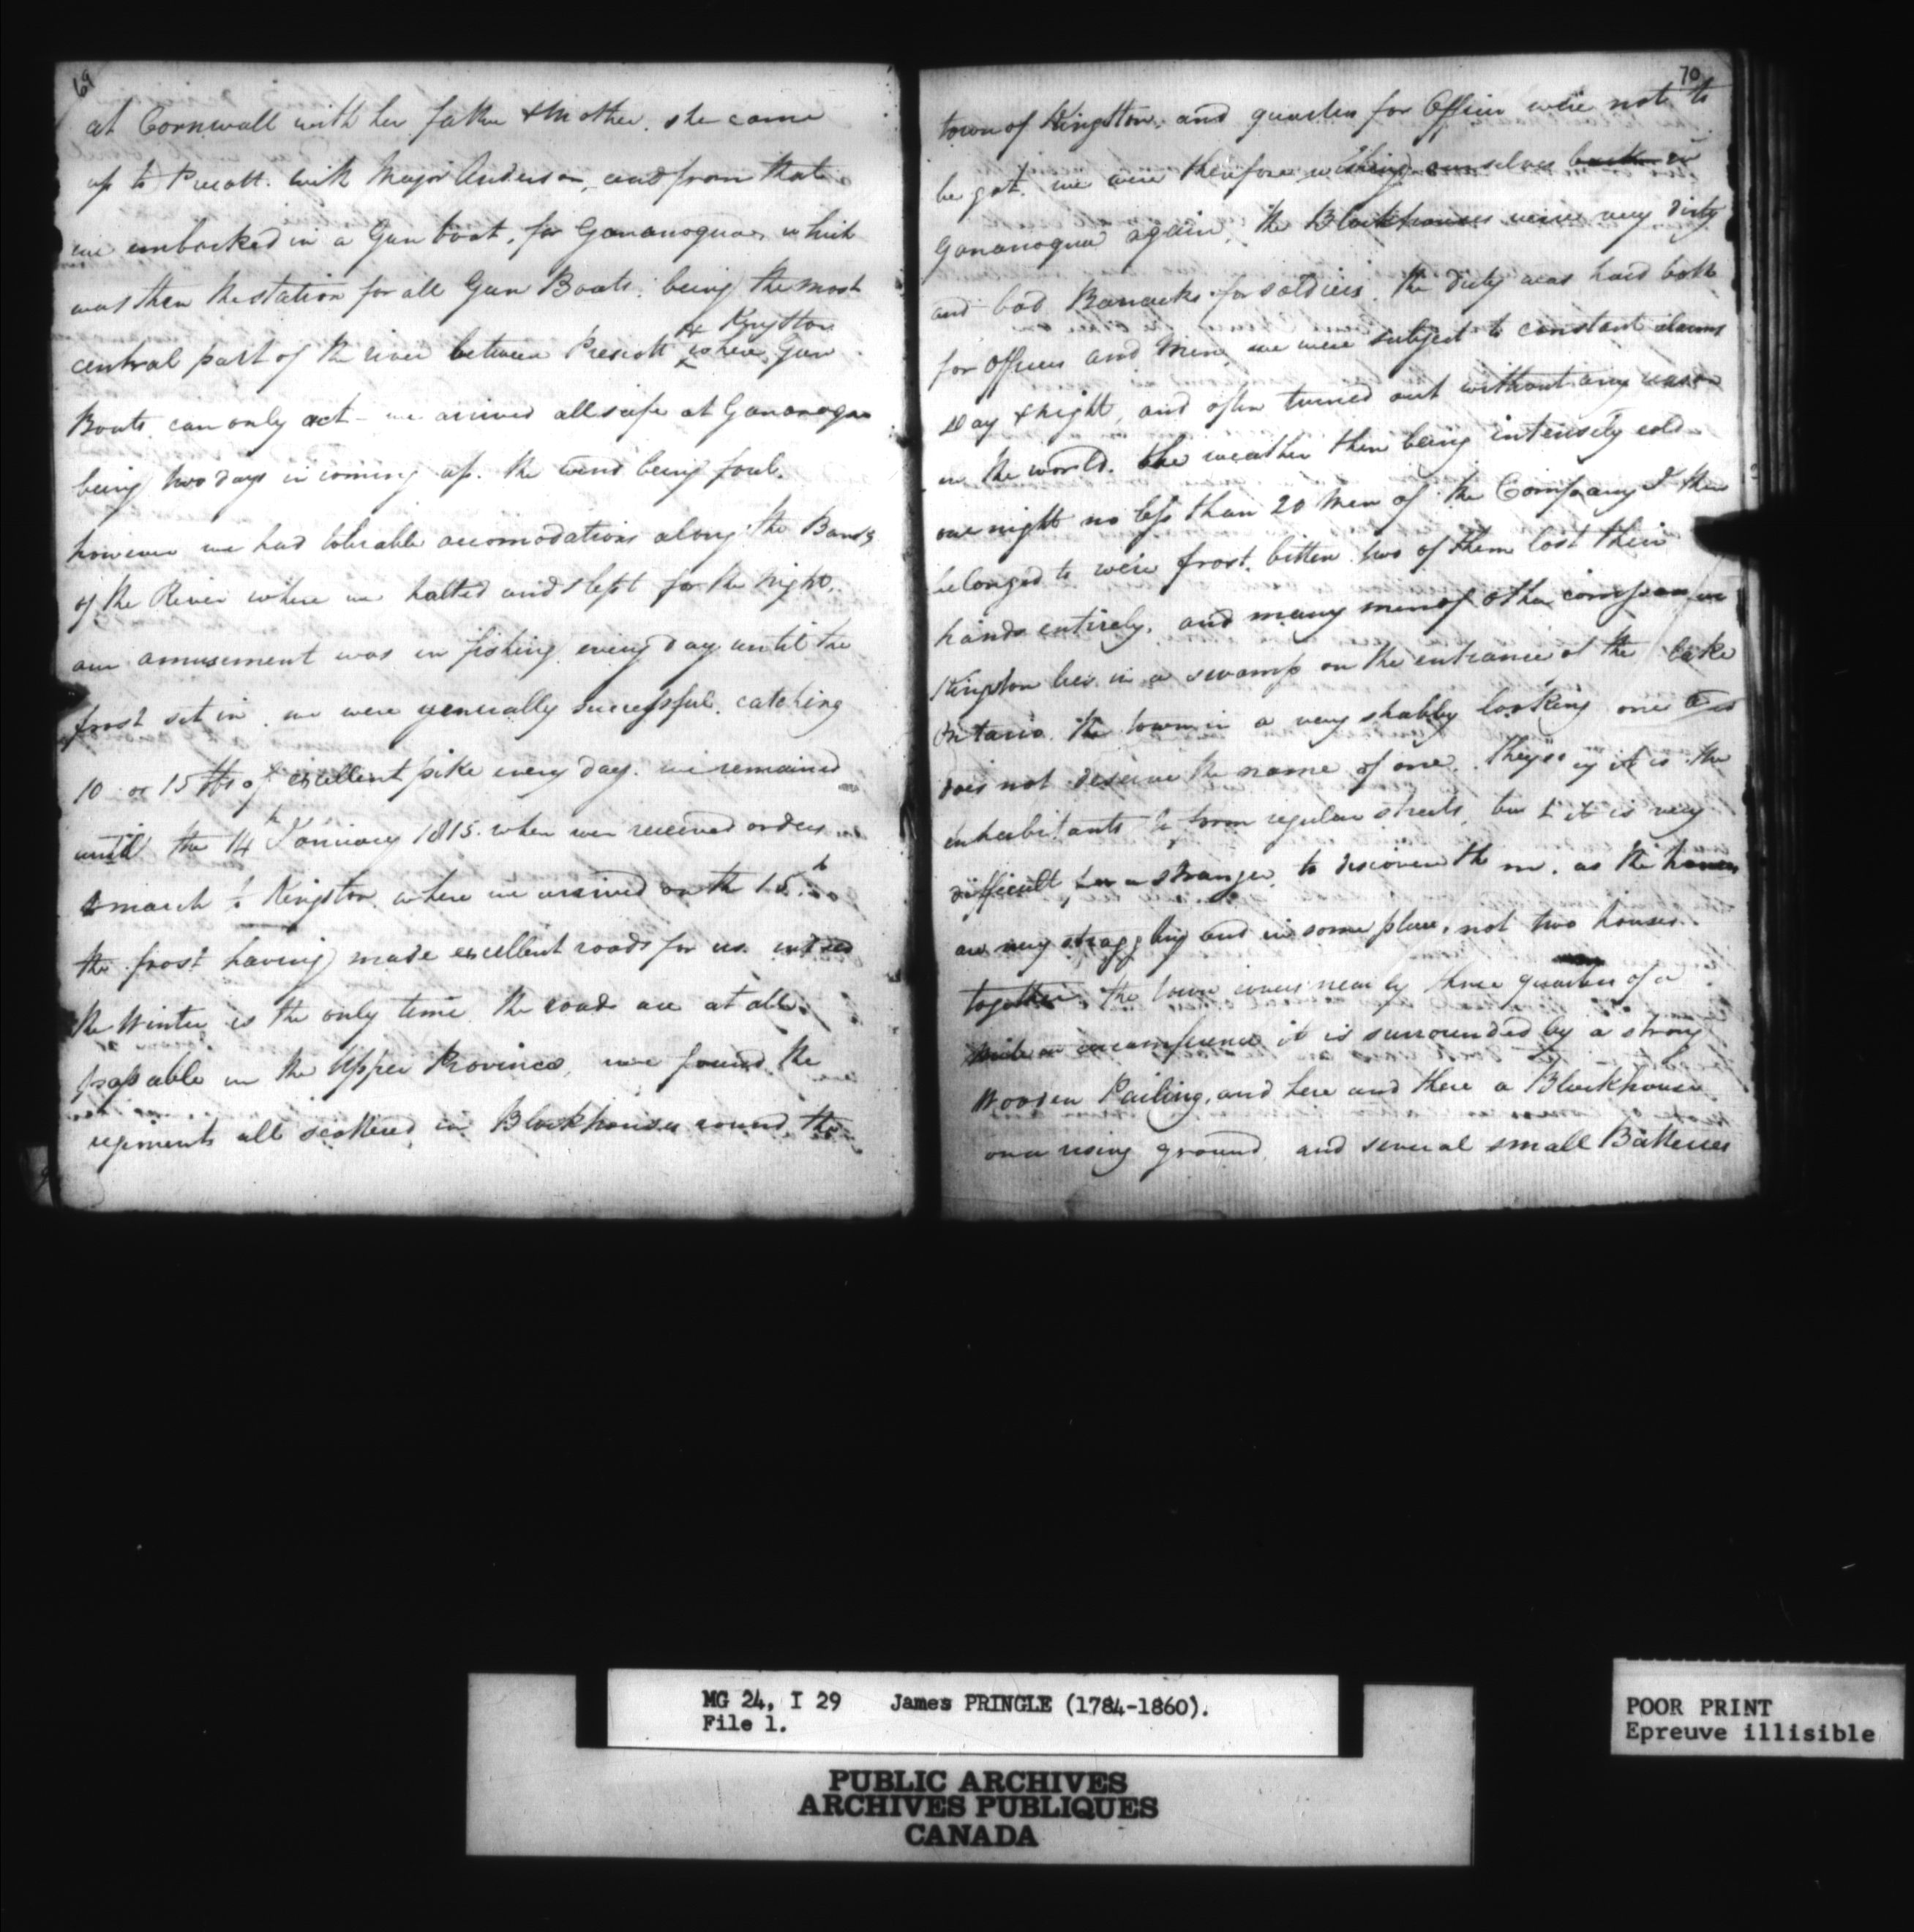 69
at Cornwall with her father & Mother. she came
up to Prescott. with Major Anderson, and from that
we embarked in a Gun boat, for Gananoqua, which
was then the station for all Gun Boats. being the most
central part of the river between Prescott & Kingston where Gun
Boats can only act - we arrived all safe at Gananoqua
being two days in coming up. the wind being foul.
however we had tolerable accomodations along the Banks
of the River where we halted and slept for the Night.
our amusement was in fishing every day until the
frost set in. we were generally successful. catching
10 or 15 lbs of excellent pike every day. we remained
until the 14th January 1815. when we received orders
to march to Kingston where we arrived on the 15th
the frost having made excellent roads for us. indeed
the Winter is the only time the roads are at all
passable in the Upper Province, we found the
regiments all scattered in Blockhouses round the
70
town of Kingston. and quarters for Officers were not to
be got. we were therefore wishing ourselves back in
Gananoqua again, the Blockhouses were very dirty
and bad Barracks for soldiers. the duty was hard both
for Officers and Men we were subject to constant alarms
Day & Night, and often turned out without any reason
in the world. the weather then being intensely cold
one night no less than 20 Men of the Company I then
belonged to were frost bitten two of them lost their
hands entirely. and many men of other
Kingston lies in a swamp on the entrance of the Lake
Ontario. the town is a very shabby looking one
does not deserve the name of one. they say it is the
inhabitants to form regular streets, but it is very
difficult for a stranger to discover them. as the houses
are very straggling and in some places not two houses
together. the town covers nearly three quarters of a
mile in circumference it is surrounded by a strong
Wooden Pailing, and here and there a Blockhouse
on a rising ground, and several small Batteries
MG 24, I 29 James PRINGLE (1784-1860).
File 1.
POOR PRINT
Epreuve illisible
PUBLIC ARCHIVES
ARCHIVES PUBLIQUES
CANADA